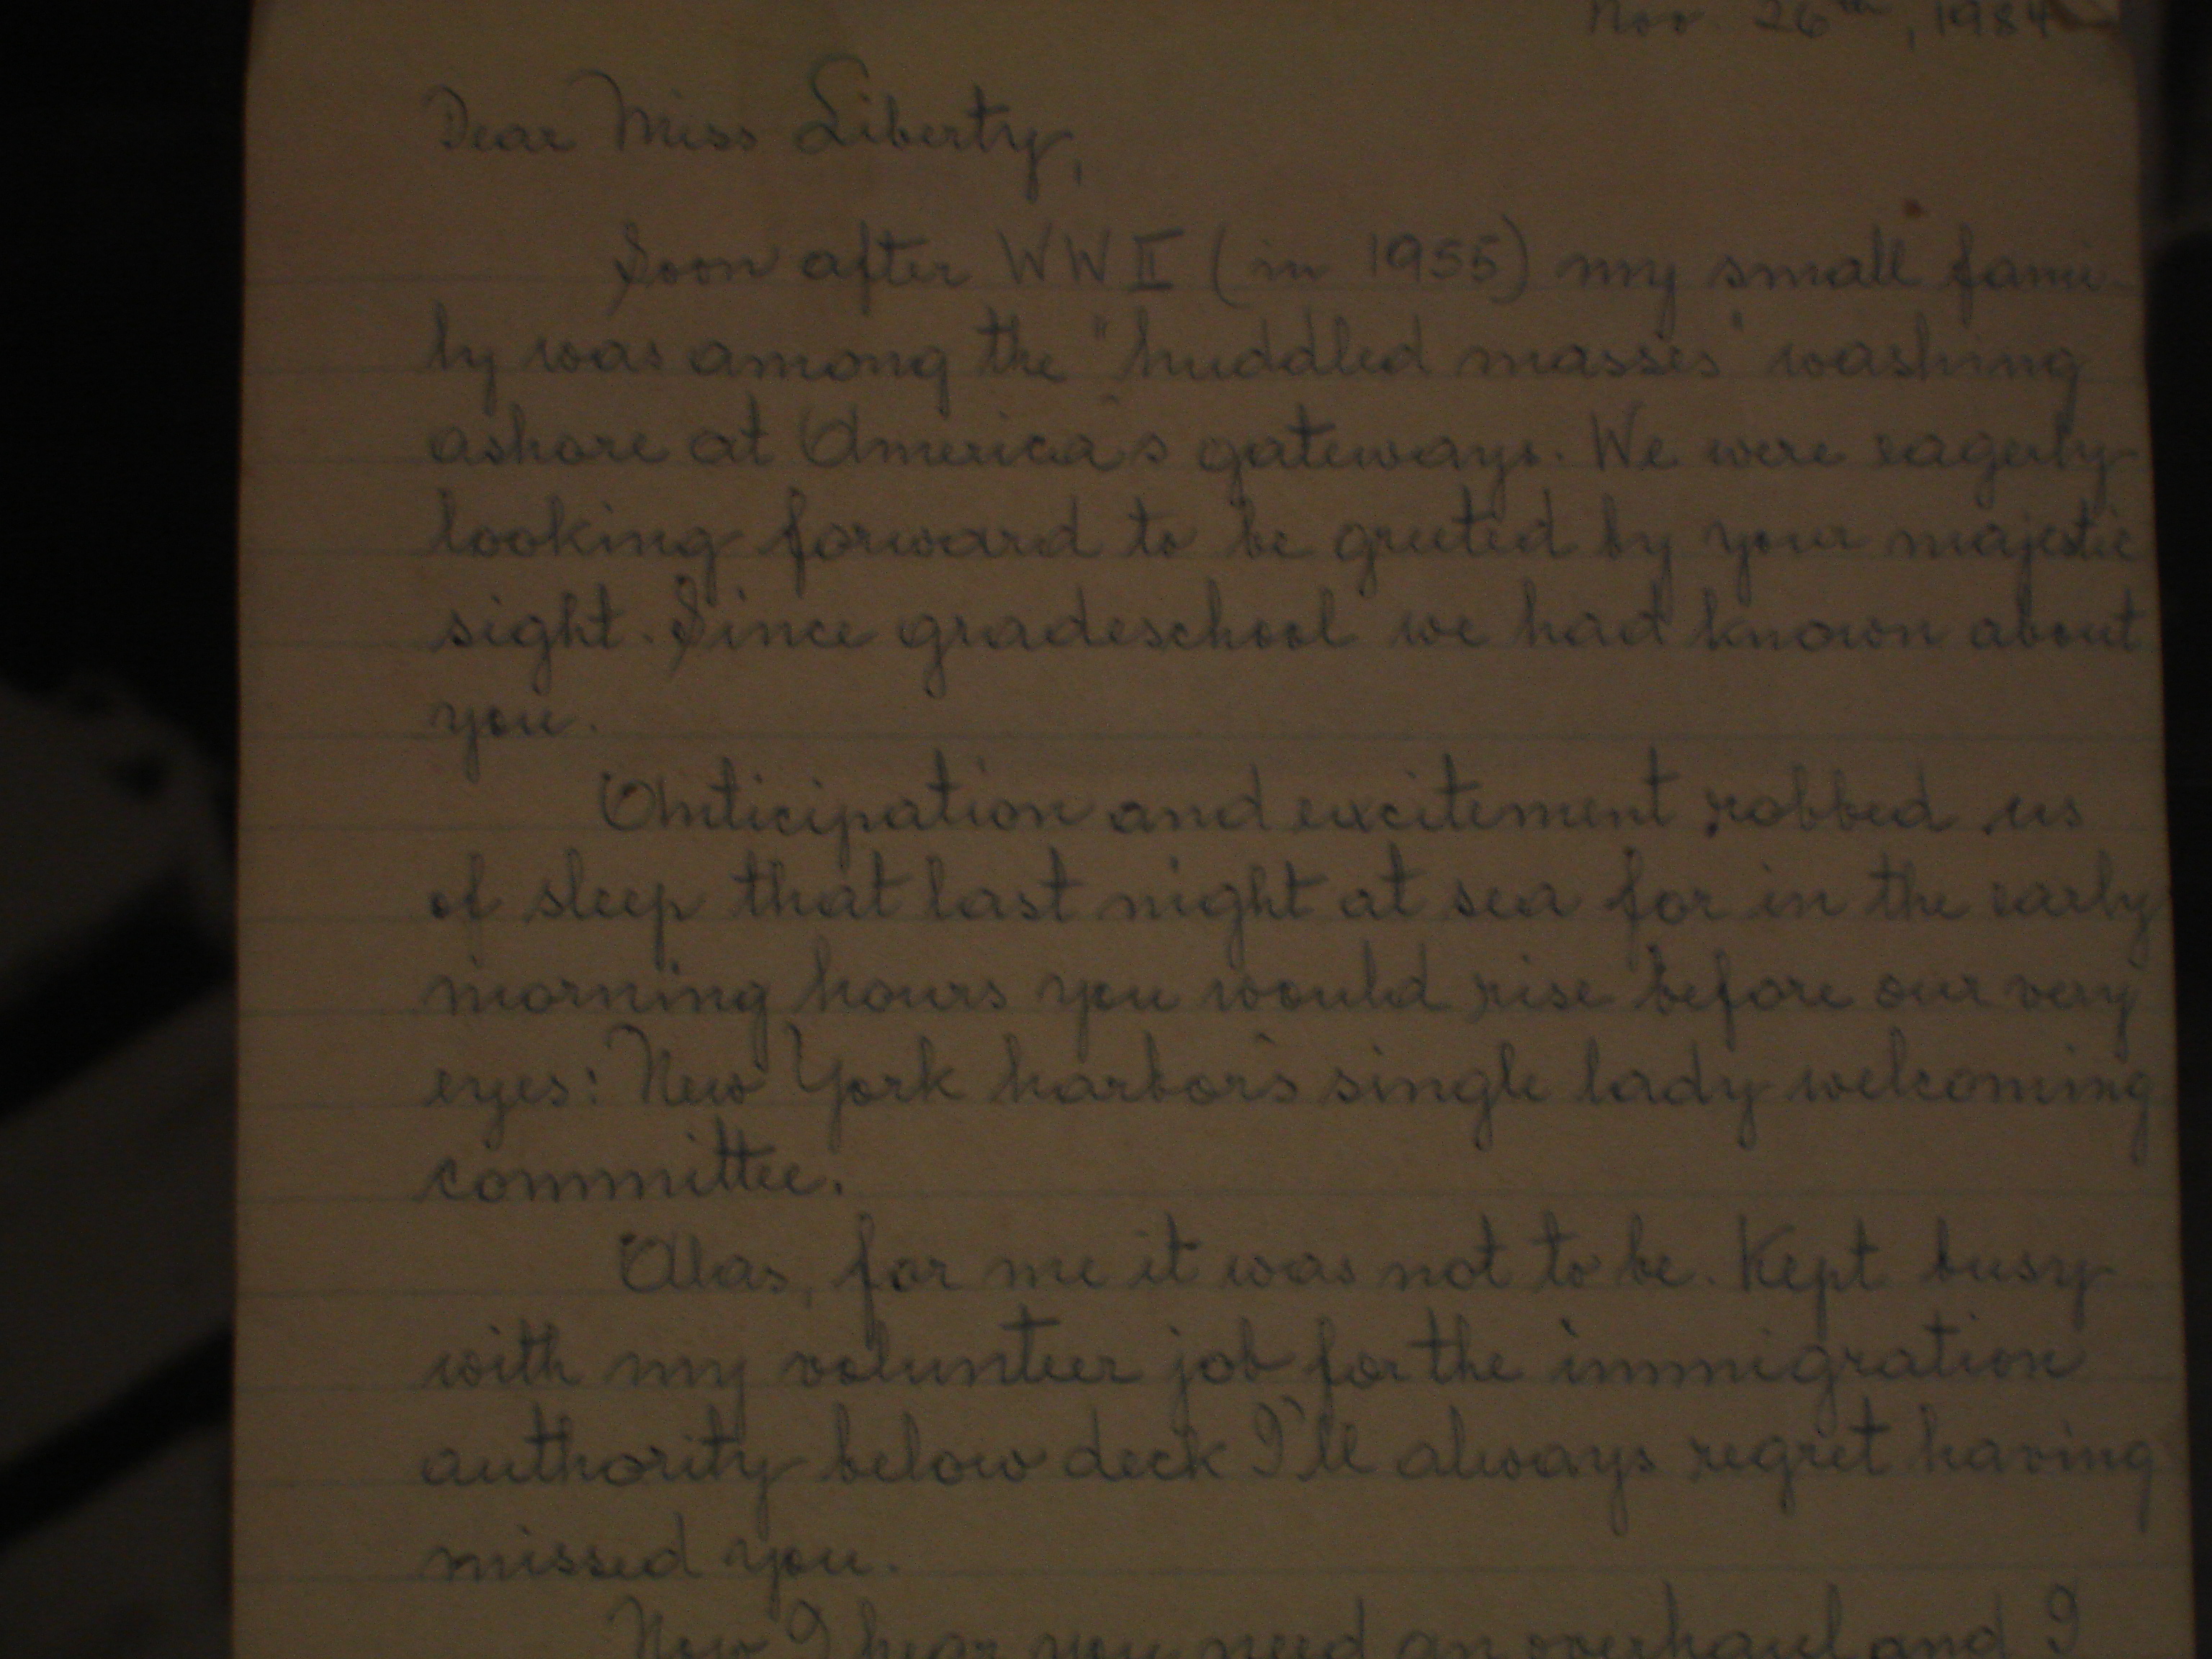 Nov. 26th, 1984
Dear Miss Liberty,
Soon after WW II (in 1955) my small fami-
ly was among the "huddled masses" washing
ashore at America's gateways. We were eagerly
looking forward to be greeted by your majestic
sight. Since gradeschool we had known about
you.
Anticipation and excitement robbed us
of sleep that last night at sea for in the early
morning hours you would rise before our very
eyes: New York harbor's single lady welcoming
committee.
Alas, for me it was not to be. Kept busy
with my volunteer job for the immigration
authority below deck I'll always regret having
missed you.
Now I hear you need an overhaul and I